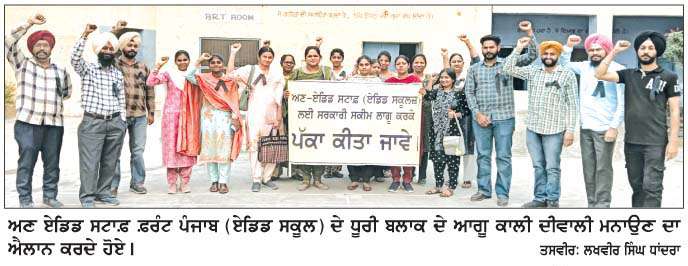 B.R.T ROOM
ਅਣ-ਏਡਿਡ ਸਟਾਫ਼ (ਏਡਿਡ ਸਕੂਲਜ਼)
ਲਈ ਸਰਕਾਰੀ ਸਕੀਮ ਲਾਗੂ ਕਰਕੇ
ਪੱਕਾ ਕੀਤਾ ਜਾਵੇ।
ਅਣ ਏਡਿਡ ਸਟਾਫ਼ ਫ਼ਰੰਟ ਪੰਜਾਬ (ਏਡਿਡ ਸਕੂਲ) ਦੇ ਧੂਰੀ ਬਲਾਕ ਦੇ ਆਗੂ ਕਾਲੀ ਦੀਵਾਲੀ ਮਨਾਉਣ ਦਾ
ਐਲਾਨ ਕਰਦੇ ਹੋਏ।
ਤਸਵੀਰ: ਲਖਵੀਰ ਸਿੰਘ ਧਾਂਦਰਾ